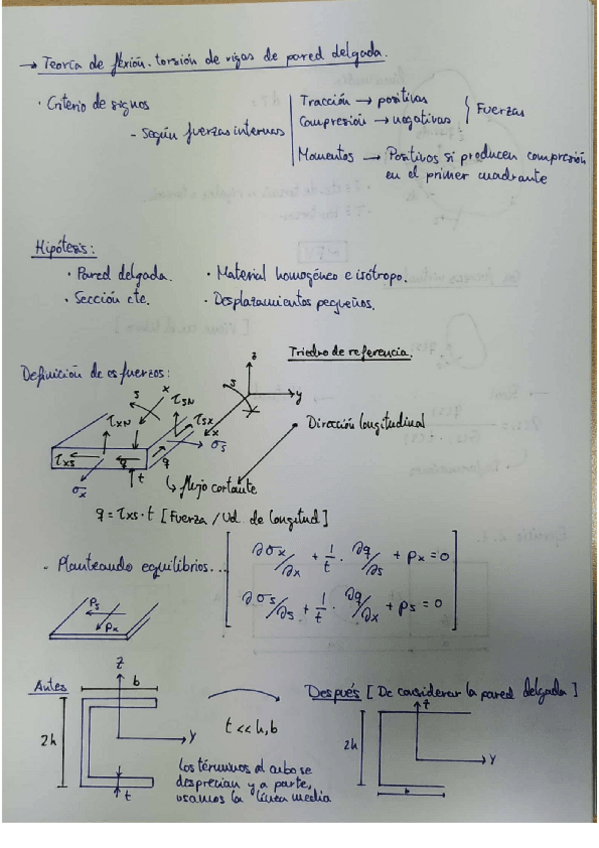 → Teoría de flexión-torsión de vigas de pared delgada.
· Criterio de signos
- Según fuerzas internas
Tracción → positivas
Compresión → negativas
Fuerzas
Momentos → Positivos si producen compresión
en el primer cuadrante
Hipótesis:
· Pared delgada.
· Material homogéneo e isótropo.
· Sección cte.
· Desplazamientos pequeños.
Definición de esfuerzos:
Triedro de referencia.
z
s
y
x
s
x
τSN
τSX
τXN
σS
τXS
q
q
σx
t
Dirección longitudinal
↳ flujo cortante
q = τxs · t [Fuerza / Ud. de longitud]
- Planteando equilibrios...
∂σx/∂x + 1/t · ∂q/∂s + px = 0
∂σs/∂s + 1/t · ∂q/∂x + ps = 0
Ps
Px
Antes
z
b
2h
y
t
t << h, b
Los términos al cubo se
desprecian y a parte,
usamos la línea media
Después [De considerar la pared delgada]
2h
y
b